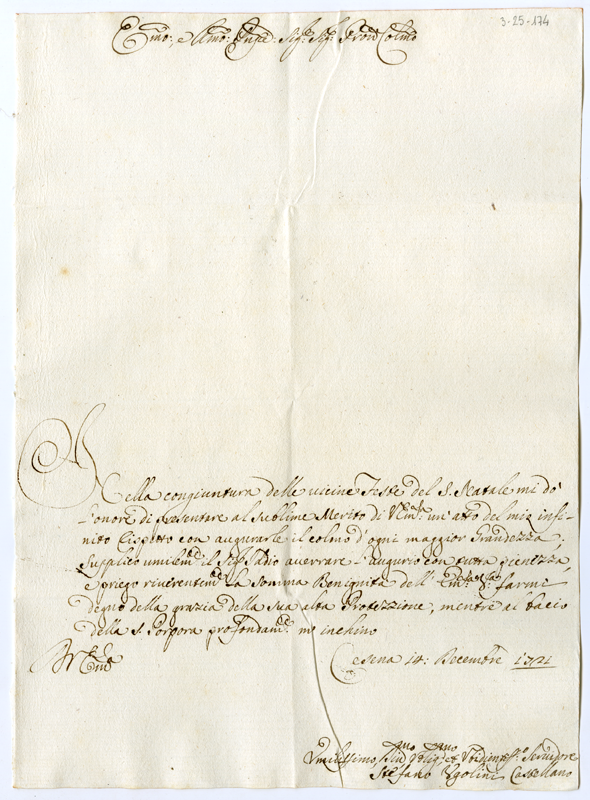 3-25-174
Emo: e Rmo: Sig:r Sig:r Pron Colmo
Nella congiuntura delle vicine Feste del S. Natale mi dò
l'onore di presentare al sublime Merito di V. Emza un' atto del mio infi-
nito rispetto con augurarle il colmo d'ogni maggior Grandezza;
Supplico umilemte il Sig: Iddio avverare l'augurio con tutta pienezza,
e priego riverentemte la somma Benignità dell' Emza Va farmi
degno della grazia della Sua alta Protezzione, mentre al bacio
della S. Porpora profondamte m' inchino
Cesena 14: Decembre 1721
Umilissimo, Servidore
Stefano Ugolini Castellano